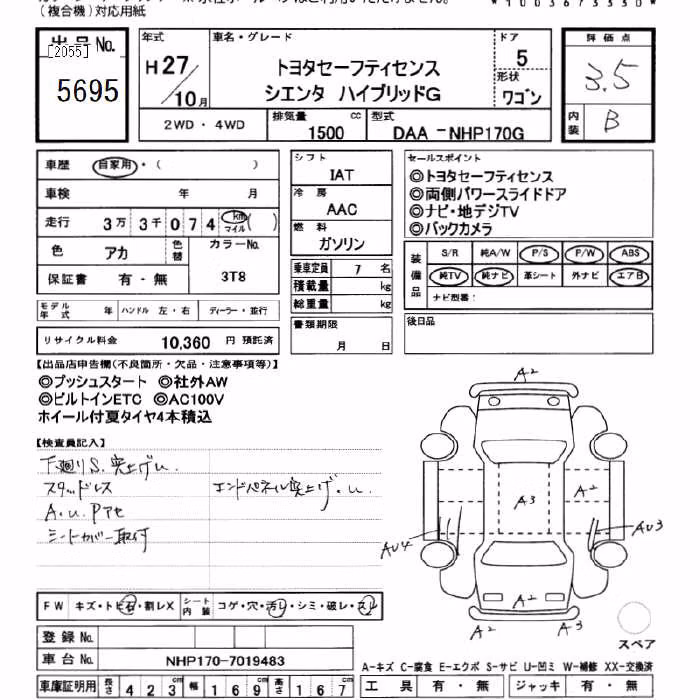 (複合機)対応用紙
出品No.
[2055]
5695
年式
H27/10月
車名・グレード
トヨタセーフティセンス
シエンタ ハイブリッドG
ドア
5
形状
ワゴン
2WD・4WD
排気量
1500 cc
型式
DAA-NHP170G
評価点
3.5
内装
B
車歴 自家用・( )
車検 年 月
走行 3万3千074 km マイル ( )
色 アカ 色替 カラーNo.
3T8
保証書 有・無
モデル年式 年 ハンドル 左・右 ディーラー・並行
リサイクル料金 10,360 円 預託済
シフト
IAT
冷房
AAC
燃料
ガソリン
乗車定員 7 名
積載量 kg
総重量 kg
書類期限
月 日
セールスポイント
◎トヨタセーフティセンス
◎両側パワースライドドア
◎ナビ・地デジTV
◎バックカメラ
装備品
S/R 純A/W P/S P/W ABS
純TV 純ナビ 革シート 外ナビ エアB
ナビ型番:
後日品
【出品店申告欄(不良箇所・欠品・注意事項等)】
◎プッシュスタート ◎社外AW
◎ビルトインETC ◎AC100V
ホイール付夏タイヤ4本積込
【検査員記入】
下廻りS.突上げu.
スタッドレス エンドパネル突上げ.u.
A.u.Pアセ
シートカバー取付
A2
A3
A2
AU4
AU3
A2
A2
A2
スペア
FW キズ・トビ石・割レX シート内装 コゲ・穴・汚レ・シミ・破レ・スレ
登録No.
車台No. NHP170-7019483
車庫証明用 長さ 423cm 幅 169cm 高さ 167cm
A-キズ C-腐食 E-エクボ S-サビ U-凹ミ W-補修 XX-交換済
工具 有・無 ジャッキ 有・無